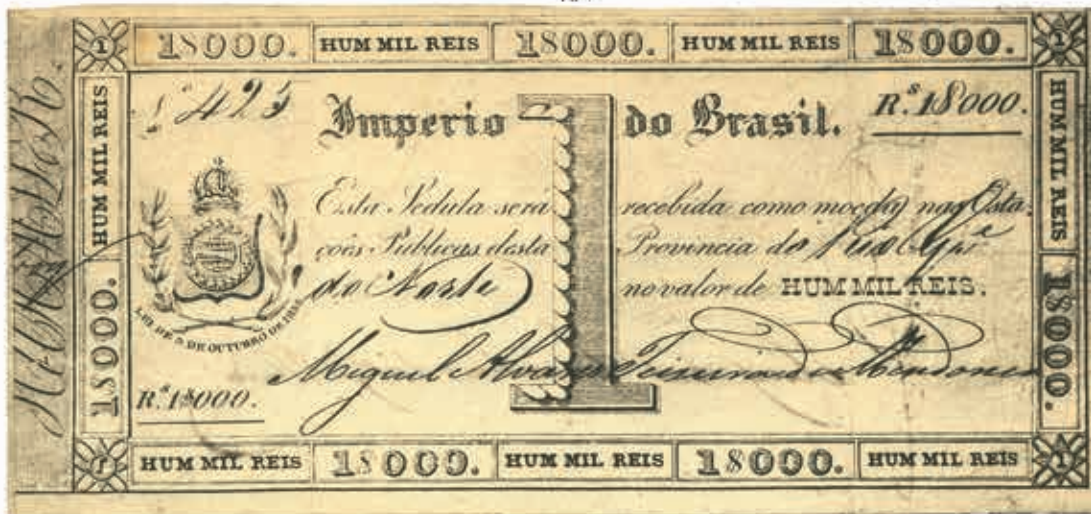 1$000. HUM MIL REIS 1$000. HUM MIL REIS 1$000.
1 1
HUM MIL REIS 1$000.
Nº 425
Imperio do Brasil. R.s 1$000.
Esta Sedula será recebida como moeda nas Esta-
ções Públicas desta Provincia do Rio Gr.e
do Norte no valor de HUM MIL REIS.
LEI DE 3 DE OUTUBRO DE
Miguel Alvares Teixeira de Mendonça
R.s 1$000.
HUM MIL REIS 1$000.
1 1
HUM MIL REIS 1$000. HUM MIL REIS 1$000. HUM MIL REIS